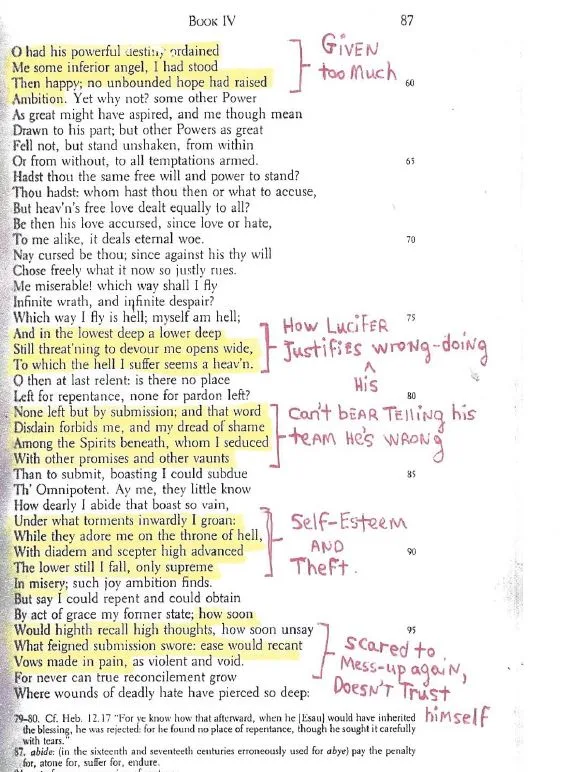 BOOK IV 87
O had his powerful destiny ordained
Me some inferior angel, I had stood
Then happy; no unbounded hope had raised 60
Ambition. Yet why not? some other Power
As great might have aspired, and me though mean
Drawn to his part; but other Powers as great
Fell not, but stand unshaken, from within
Or from without, to all temptations armed. 65
Hadst thou the same free will and power to stand?
Thou hadst: whom hast thou then or what to accuse,
But heav'n's free love dealt equally to all?
Be then his love accursed, since love or hate,
To me alike, it deals eternal woe. 70
Nay cursed be thou; since against his thy will
Chose freely what it now so justly rues.
Me miserable! which way shall I fly
Infinite wrath, and infinite despair?
Which way I fly is hell; myself am hell; 75
And in the lowest deep a lower deep
Still threat'ning to devour me opens wide,
To which the hell I suffer seems a heav'n.
O then at last relent: is there no place
Left for repentance, none for pardon left? 80
None left but by submission; and that word
Disdain forbids me, and my dread of shame
Among the Spirits beneath, whom I seduced
With other promises and other vaunts
Than to submit, boasting I could subdue 85
Th' Omnipotent. Ay me, they little know
How dearly I abide that boast so vain,
Under what torments inwardly I groan:
While they adore me on the throne of hell,
With diadem and scepter high advanced 90
The lower still I fall, only supreme
In misery; such joy ambition finds.
But say I could repent and could obtain
By act of grace my former state; how soon
Would highth recall high thoughts, how soon unsay 95
What feigned submission swore: ease would recant
Vows made in pain, as violent and void.
For never can true reconcilement grow
Where wounds of deadly hate have pierced so deep:
79-80. Cf. Heb. 12.17 "For ye know how that afterward, when he [Esau] would have inherited
the blessing, he was rejected: for he found no place of repentance, though he sought it carefully
with tears."
87. abide: (in the sixteenth and seventeeth centuries erroneously used for abye) pay the penalty
for, atone for, suffer for, endure.
GIVEN
too Much
How LuciFER
Justifies wrong-doing
^
His
Can't bEAR TElling his
tEAM HE's WRONG
Self-EstEEM
AND
Theft.
Scared to
Mess-up again,
DoEsn't Trust
himself